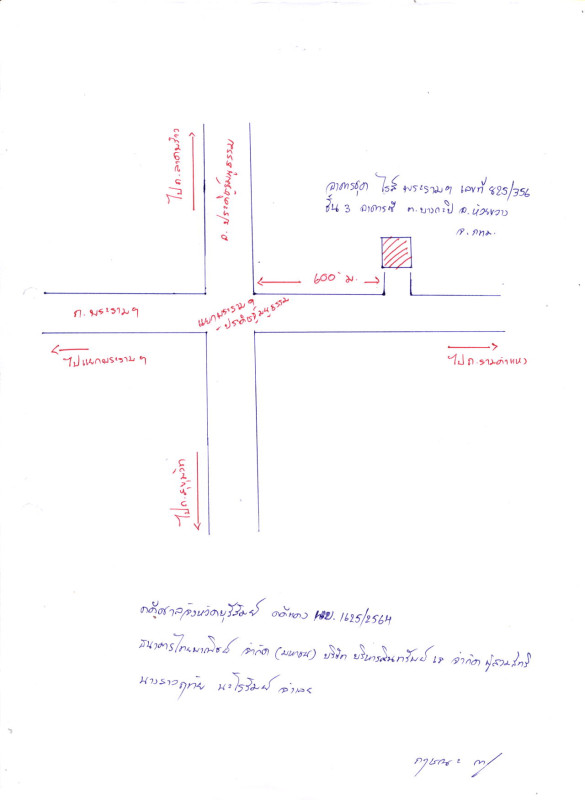 ไปถ.ลาดพร้าว
ถ. ประดิษฐ์มนูธรรม
อาคารชุด ไรส์ พระราม ๙ เลขที่ 825/356
ชั้น 3 อาคารซี ต.บางกะปิ อ.ห้วยขวาง
จ.กทม.
600 ม.
ถ. พระราม ๙
แยกพระราม ๙
- ประดิษฐ์มนูธรรม
ไปแยกพระราม ๙
ไปถ.รามคำแหง
ไปถ.สุขุมวิท
คดีศาลจังหวัดบุรีรัมย์ คดีแดง ผบ. 1625/2564
ธนาคารไทยพาณิชย์ จำกัด (มหาชน) บริษัท บริหารสินทรัพย์ จำกัด ผู้สวมสิทธิ
จำเลย